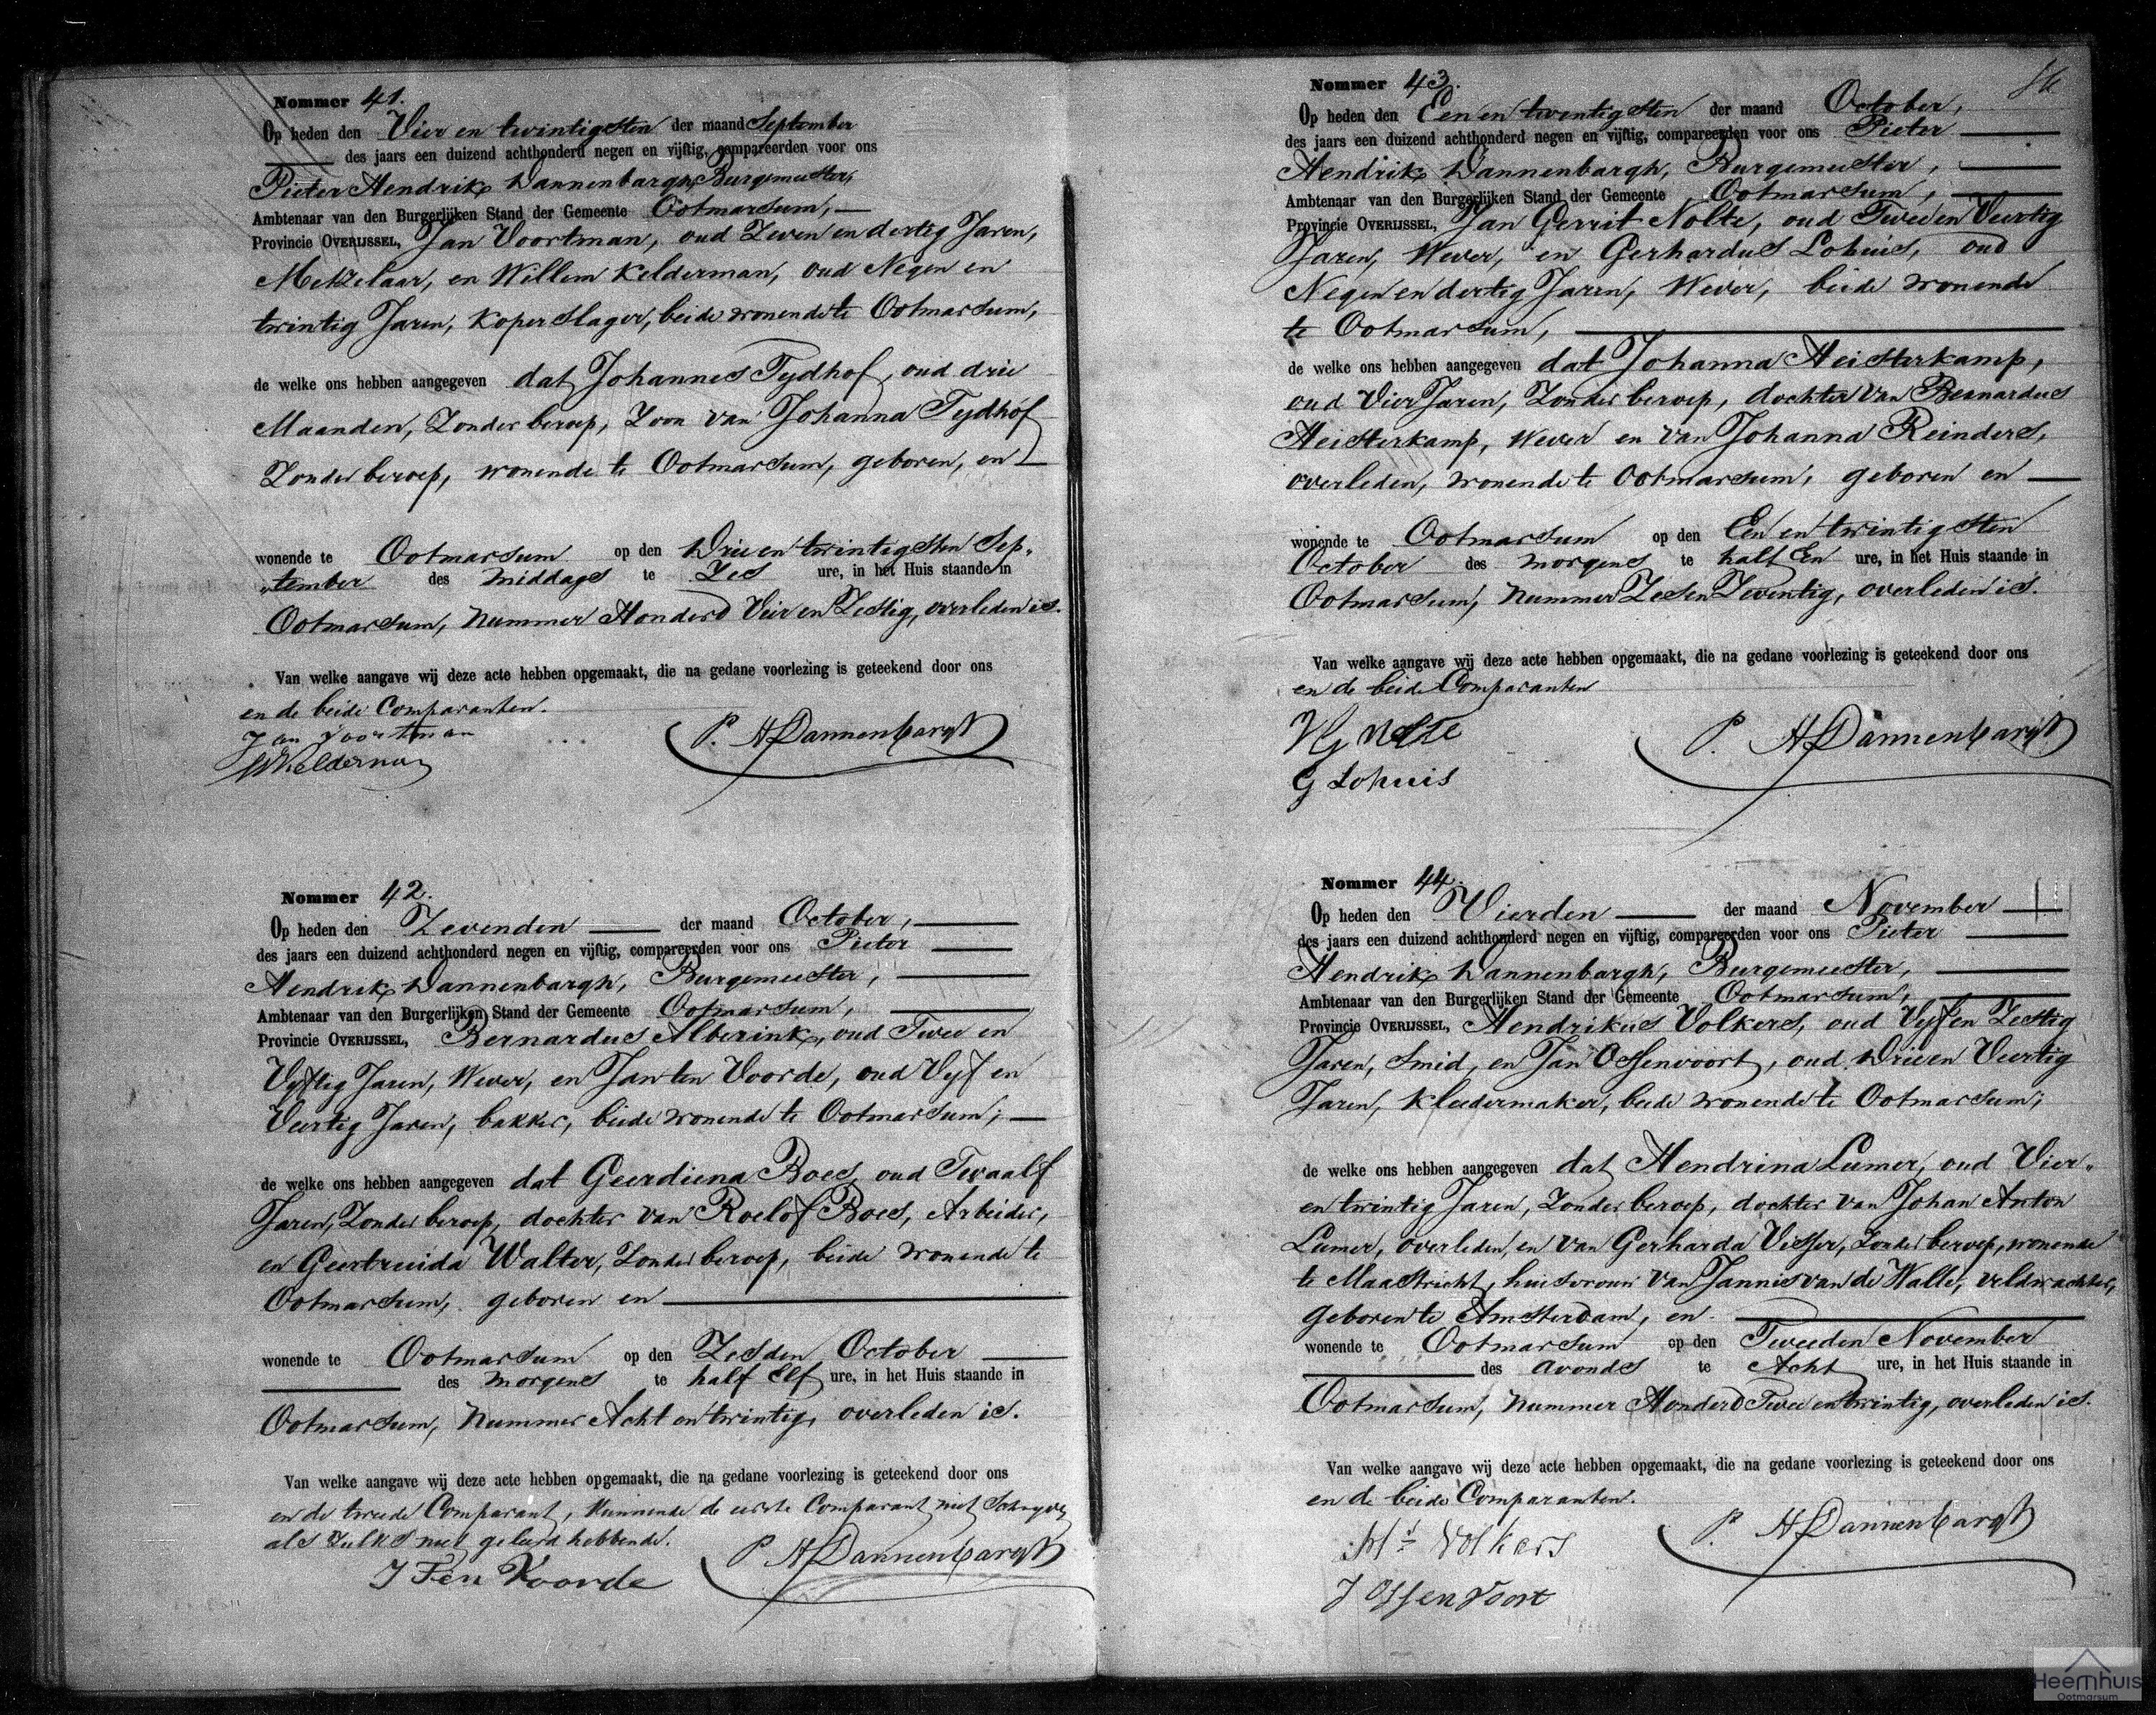 Nommer 41.
Op heden den Vier en twintigsten der maand September
des jaars een duizend achthonderd negen en vijftig, compareerden voor ons
Pieter Hendrik Dannenbargh, Burgemeester,
Ambtenaar van den Burgerlijken Stand der Gemeente Ootmarsum,
Provincie OVERIJSSEL, Jan Voortman, oud Zeven en dertig Jaren,
Metzelaar, en Willem Kelderman, oud Negen en
twintig Jaren, Koperslager, beide wonende te Ootmarsum,
de welke ons hebben aangegeven dat Johannes Tydhof, oud drie
Maanden, Zonder beroep, Zoon van Johanna Tydhof
Zonder beroep, wonende te Ootmarsum, geboren, en
wonende te Ootmarsum op den Drie en twintigsten Sep„
„tember des middags te Zes ure, in het Huis staande in
Ootmarsum, Nummer Honderd Vier en Zestig, overleden is.
Van welke aangave wij deze acte hebben opgemaakt, die na gedane voorlezing is geteekend door ons
en de beide Comparanten.
Jan Voortman P. H Dannenbargh
WKelderman
Nommer 42.
Op heden den Zevenden der maand October,
des jaars een duizend achthonderd negen en vijftig, compareerden voor ons Pieter
Hendrik Dannenbargh, Burgemeester,
Ambtenaar van den Burgerlijken Stand der Gemeente Ootmarsum,
Provincie OVERIJSSEL, Bernardus Alberink, oud Twee en
Vyftig Jaren, Wever, en Jan ten Voorde, oud Vyf en
Veertig Jaren, bakker, beide wonende te Ootmarsum,
de welke ons hebben aangegeven dat Geerdiena Boes, oud Twaalf
Jaren, Zonder beroep, dochter van Roelof Boes, Arbeider,
en Geertruida Walter, Zonder beroep, beide wonende te
Ootmarsum, geboren en
wonende te Ootmarsum op den Zesden October
des morgens te half Elf ure, in het Huis staande in
Ootmarsum, Nummer Acht en twintig, overleden is.
Van welke aangave wij deze acte hebben opgemaakt, die na gedane voorlezing is geteekend door ons
en de tweede Comparant, Kunnende de eerste Comparant niet Schryven
als Zulks niet geleerd hebbende.
J Ten Voorde P H Dannenbargh
Nommer 43.
Op heden den Een en twintigsten der maand October,
des jaars een duizend achthonderd negen en vijftig, compareerden voor ons Pieter
Hendrik Dannenbargh, Burgemeester,
Ambtenaar van den Burgerlijken Stand der Gemeente Ootmarsum,
Provincie OVERIJSSEL, Jan Gerrit Nolte, oud Twee en Veertig
Jaren, Wever, en Gerhardus Lohuis, oud
Negen en dertig Jaren, Wever, beide wonende
te Ootmarsum,
de welke ons hebben aangegeven dat Johanna Heisterkamp,
oud Vier Jaren, Zonder beroep, dochter van Bernardus
Heisterkamp, Wever en van Johanna Reinders,
overleden, wonende te Ootmarsum, geboren en
wonende te Ootmarsum op den Een en twintigsten
October des morgens te half Een ure, in het Huis staande in
Ootmarsum, Nummer Zes en Zeventig, overleden is.
Van welke aangave wij deze acte hebben opgemaakt, die na gedane voorlezing is geteekend door ons
en de beide Comparanten
Nolte P. H Dannenbargh
G Lohuis
Nommer 44.
Op heden den Vierden der maand November
des jaars een duizend achthonderd negen en vijftig, compareerden voor ons Pieter
Hendrik Dannenbargh, Burgemeester,
Ambtenaar van den Burgerlijken Stand der Gemeente Ootmarsum,
Provincie OVERIJSSEL, Hendrikus Volkers, oud Vyf en Zestig
Jaren, Smid, en Jan Ossenvoort, oud Drie en Veertig
Jaren, Kleedermaker, beide wonende te Ootmarsum;
de welke ons hebben aangegeven dat Hendrina Lumer, oud Vier„
en twintig Jaren, Zonder beroep, dochter van Johan Anton
Lumer, overleden, en van Gerharda Visser, Zonder beroep, wonende
te Maastricht, huisvrouw van Jannis van de Walle, veldwachter,
geboren te Amsterdam, en
wonende te Ootmarsum op den Tweeden November
des avonds te Acht ure, in het Huis staande in
Ootmarsum, Nummer Honderd Twee en twintig, overleden is.
Van welke aangave wij deze acte hebben opgemaakt, die na gedane voorlezing is geteekend door ons
en de beide Comparanten.
Volkers P. H Dannenbargh
J Ossenvoort
Heemhuis
Ootmarsum